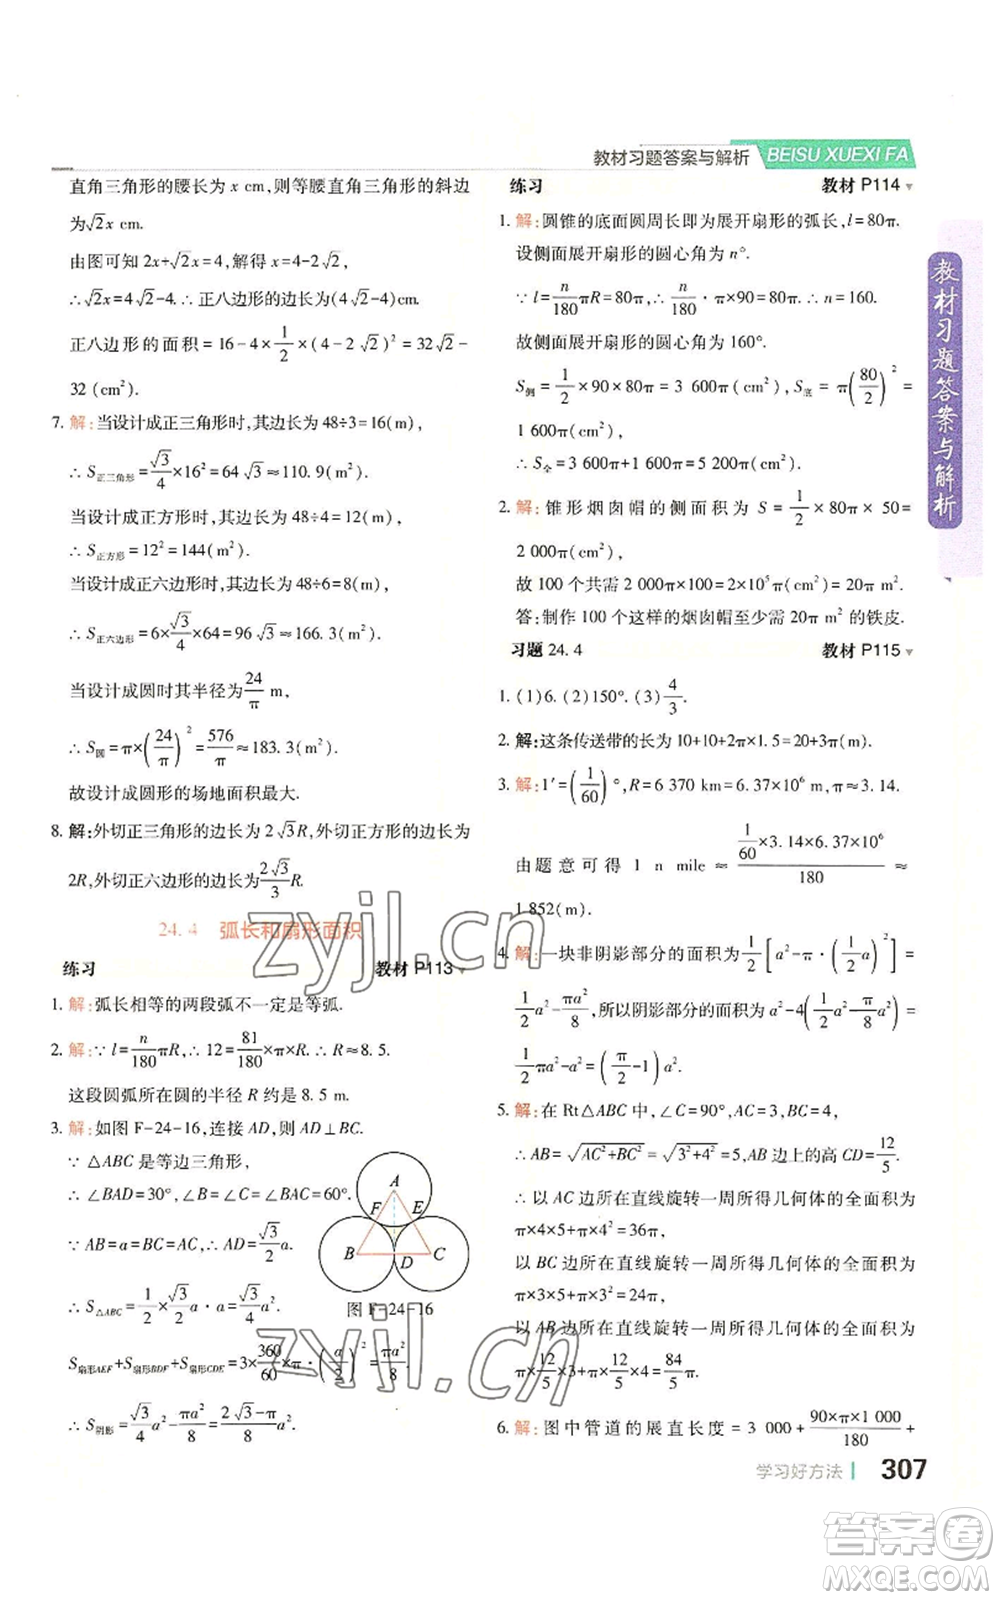 教材习题答案与解析 BEISU XUEXI FA
直角三角形的腰长为 x cm,则等腰直角三角形的斜边
为√2x cm.
由图可知 2x+√2x=4,解得 x=4-2√2,
∴√2x=4√2-4.∴正八边形的边长为(4√2-4)cm.
正八边形的面积=16-4×1/2×(4-2√2)²=32√2-
32(cm²).
7. 解:当设计成正三角形时,其边长为 48÷3=16(m),
∴S正三角形=√3/4×16²=64√3≈110.9(m²).
当设计成正方形时,其边长为 48÷4=12(m),
∴S正方形=12²=144(m²).
当设计成正六边形时,其边长为 48÷6=8(m),
∴S正六边形=6×√3/4×64=96√3≈166.3(m²).
当设计成圆时其半径为24/π m,
∴S圆=π×(24/π)²=576/π≈183.3(m²).
故设计成圆形的场地面积最大.
8. 解:外切正三角形的边长为 2√3R,外切正方形的边长为
2R,外切正六边形的边长为2√3/3R.
24.4 弧长和扇形面积
练习 教材 P113
1. 解:弧长相等的两段弧不一定是等弧.
2. 解:∵l=n/180πR,∴12=81/180×π×R.∴R≈8.5.
这段圆弧所在圆的半径 R 约是 8.5 m.
3. 解:如图 F-24-16,连接 AD,则 AD⊥BC.
∵△ABC 是等边三角形,
∴∠BAD=30°,∠B=∠C=∠BAC=60°.
∵AB=a=BC=AC,∴AD=√3/2a.
∴S△ABC=1/2×√3/2a·a=√3/4a².
S扇形AEF+S扇形BDF+S扇形CDE=3×360/60×π·(a/2)²=πa²/8.
∴S阴影=√3/4a²-πa²/8=2√3-π/8a².
A
F E
B D C
图 F-24-16
练习 教材 P114
1. 解:圆锥的底面圆周长即为展开扇形的弧长,l=80π.
设侧面展开扇形的圆心角为 n°.
∵l=n/180πR=80π,∴n/180·π×90=80π.∴n=160.
故侧面展开扇形的圆心角为 160°.
S侧=1/2×90×80π=3 600π(cm²),S底=π(80/2)²=
1 600π(cm²).
∴S全=3 600π+1 600π=5 200π(cm²).
2. 解:锥形烟囱帽的侧面积为 S=1/2×80π×50=
2 000π(cm²).
故 100 个共需 2 000π×100=2×10⁵π(cm²)=20π m².
答:制作 100 个这样的烟囱帽至少需 20π m² 的铁皮.
习题 24.4 教材 P115
1. (1)6. (2)150°. (3)4/3.
2. 解:这条传送带的长为 10+10+2π×1.5=20+3π(m).
3. 解:1′=(1/60)°,R=6 370 km=6.37×10⁶ m,π≈3.14.
由题意可得 1 n mile≈(1/60×3.14×6.37×10⁶)/180≈
1 852(m).
4. 解:一块非阴影部分的面积为1/2[a²-π(a/2)²]=
1/2a²-πa²/8,所以阴影部分的面积为 a²-4(1/2a²-π/8a²)=
1/2πa²-a²=(π/2-1)a².
5. 解:在 Rt△ABC 中,∠C=90°,AC=3,BC=4,
∴AB=√(AC²+BC²)=√(3²+4²)=5,AB 边上的高 CD=12/5.
∴以 AC 边所在直线旋转一周所得几何体的全面积为
π×4×5+π×4²=36π,
以 BC 边所在直线旋转一周所得几何体的全面积为
π×3×5+π×3²=24π,
以 AB 边所在直线旋转一周所得几何体的全面积为
π×12/5×3+π×12/5×4=84/5π.
6. 解:图中管道的展直长度=3 000+90×π×1 000/180+
教材习题答案与解析
学习好方法 307
zyjl.cn
zyjl.cn
答案圈
MXQE.COM